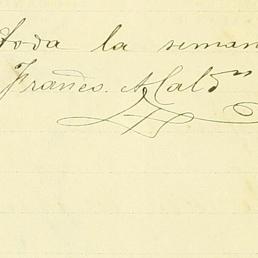 toda la seman
Francs. A Cald